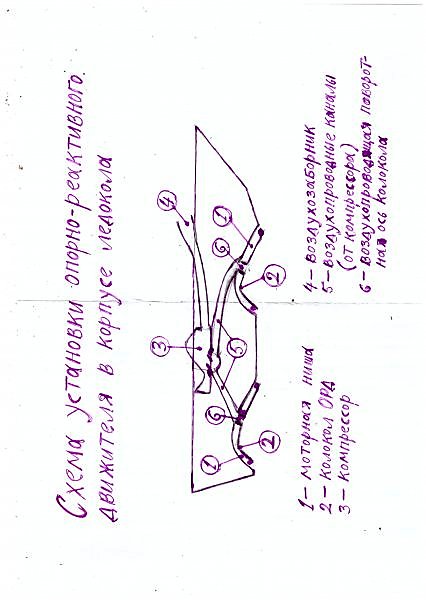 Схема установки опорно-реактивного.
движителя в корпусе ледокола
4
1
6
2
3
5
6
2
1
1 – моторная ниша
2 – колокол ОРД
3 – компрессор
4 – воздухозаборник
5 – воздухопроводные каналы
(от компрессора)
6 – воздухопроводящая поворот-
ная ось колокола